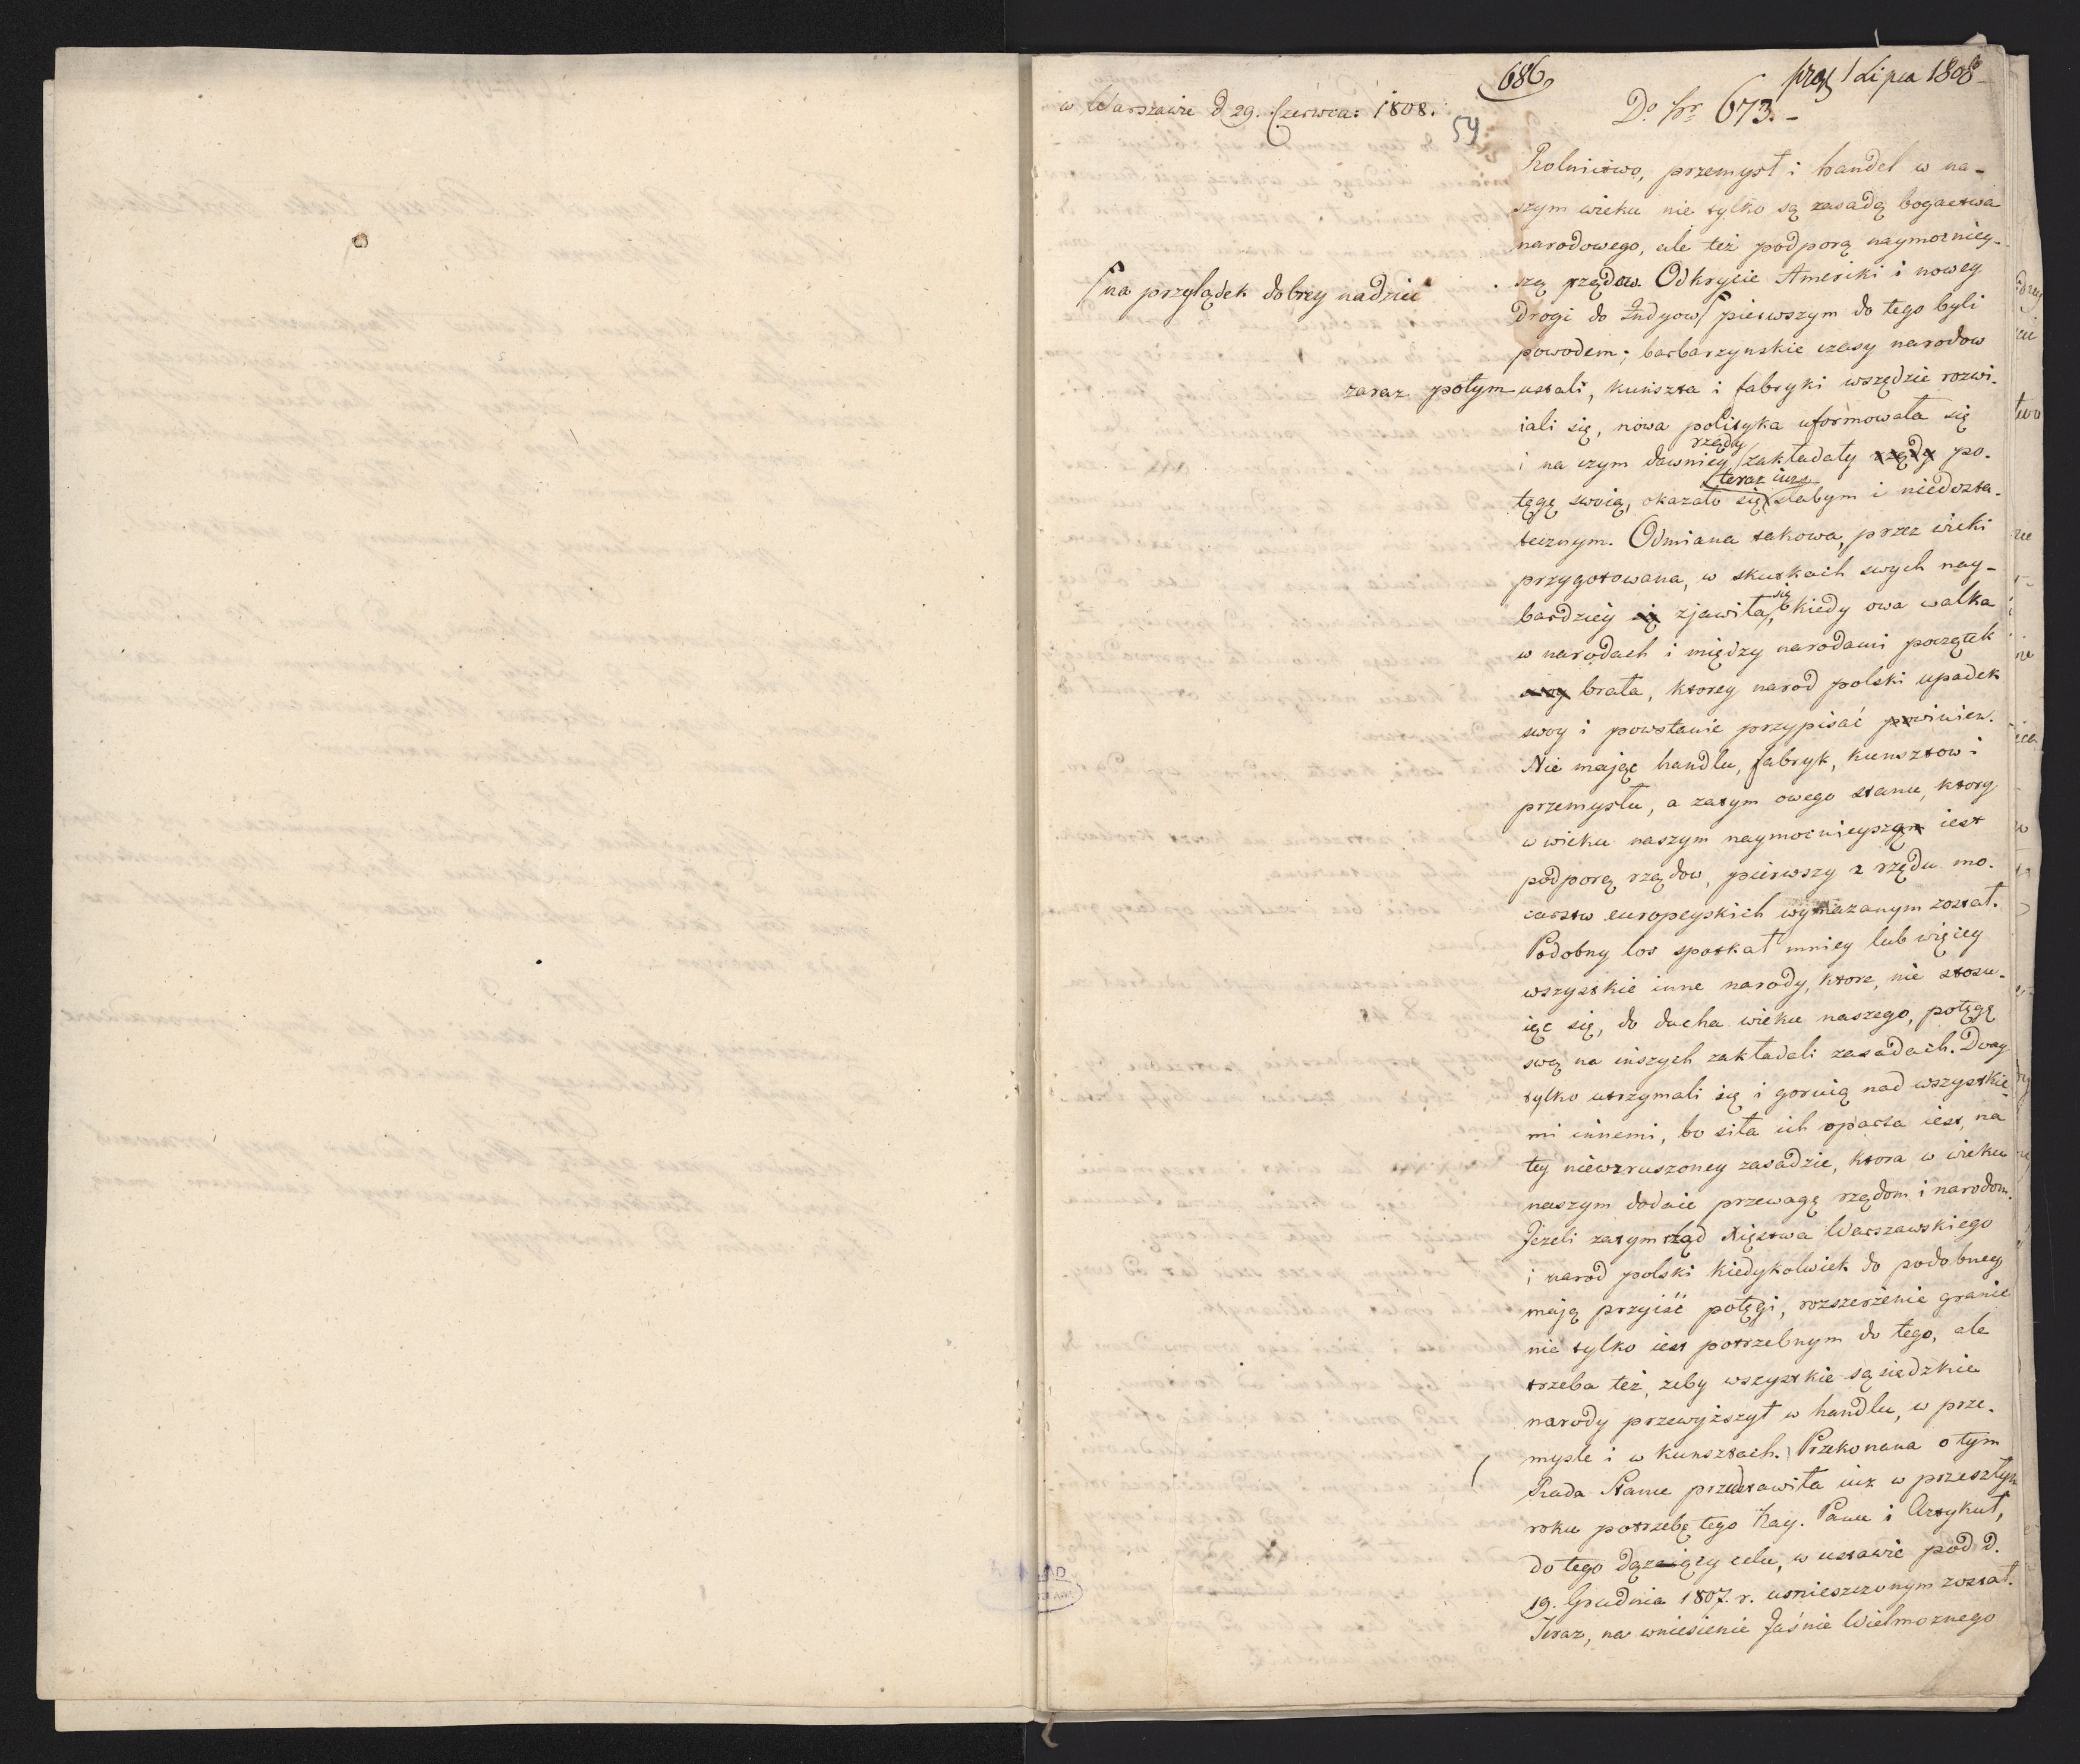 686.
praes 1 Lipca 1808
w Warszawie d 29. Czerwca: 1808.
Do Nr 673.-
54
Rolnictwo, przemysł i handel w na-
szym wieku nie tylko są zasadą bogactwa
narodowego, ale też podporą naymocniey-
szą rządow. Odkrycie Ameriki i nowey
drogi do Indyow/ pierwszym do tego byli
/na przylądek dobrey nadziei
powodem; barbarzynskie czasy narodow
zaraz potym ustali, kunszta i fabryki wszędzie rozwi-
iali się, nowa polityka uformowała się
i na czym dawniey /rządy/ zakładały rządy po-
tęgę swoią, okazało się /teraz iuz słabym i niedosta-
tecznym. Odmiana takowa, przez wieki
przygotowana, w skutkach swych nay-
bardziey się zjawiła się, kiedy owa walka
w narodach i między narodami początek
swoy brała, ktorey narod polski upadek
swoy i powstanie przypisać powinien.
Nie maiąc handlu, fabryk, kunsztow i
przemysłu, a zatym owego stanu, ktory
w wieku naszym naymocnieyszą iest
podporą rządow, pierwszy z rzędu mo-
carstw europeyskich wymazanym został.
Podobny los spotkał mniey lub więcey
wszystkie inne narody, ktore, nie stosu-
iąc się, do ducha wieku naszego, potęgę
swą na inszych zakładali zasadach. Dway
tylko utrzymali się i gorują nad wszystkie-
mi innemi, bo siła ich oparta iest, na
tey niewzruszoney zasadzie, ktora w wieku
naszym dodaie przewagę rządom i narodom.
Jeżeli zatym rząd Xięstwa Warszawskiego
i narod polski kiedykolwiek do podobney
mają przyiść potęgi, rozszerżenie granic
nie tylko iest potrzebnym do tego, ale
trzeba też, zeby wszystkie sąsiedzkie
narody przewyższył w handlu, w prze-
mysle i w kunsztach. Przekonana o tym
Rada Stanu przedstawiła iuz w przeszłym
roku potrzebę tego Nay. Panu i Artykuł,
do tego dążący celu, w ustawie pod d.
19. Grudnia 1807. r. umieszczonym został.
Teraz, na wniesienie Jaśnie Wielmoznego